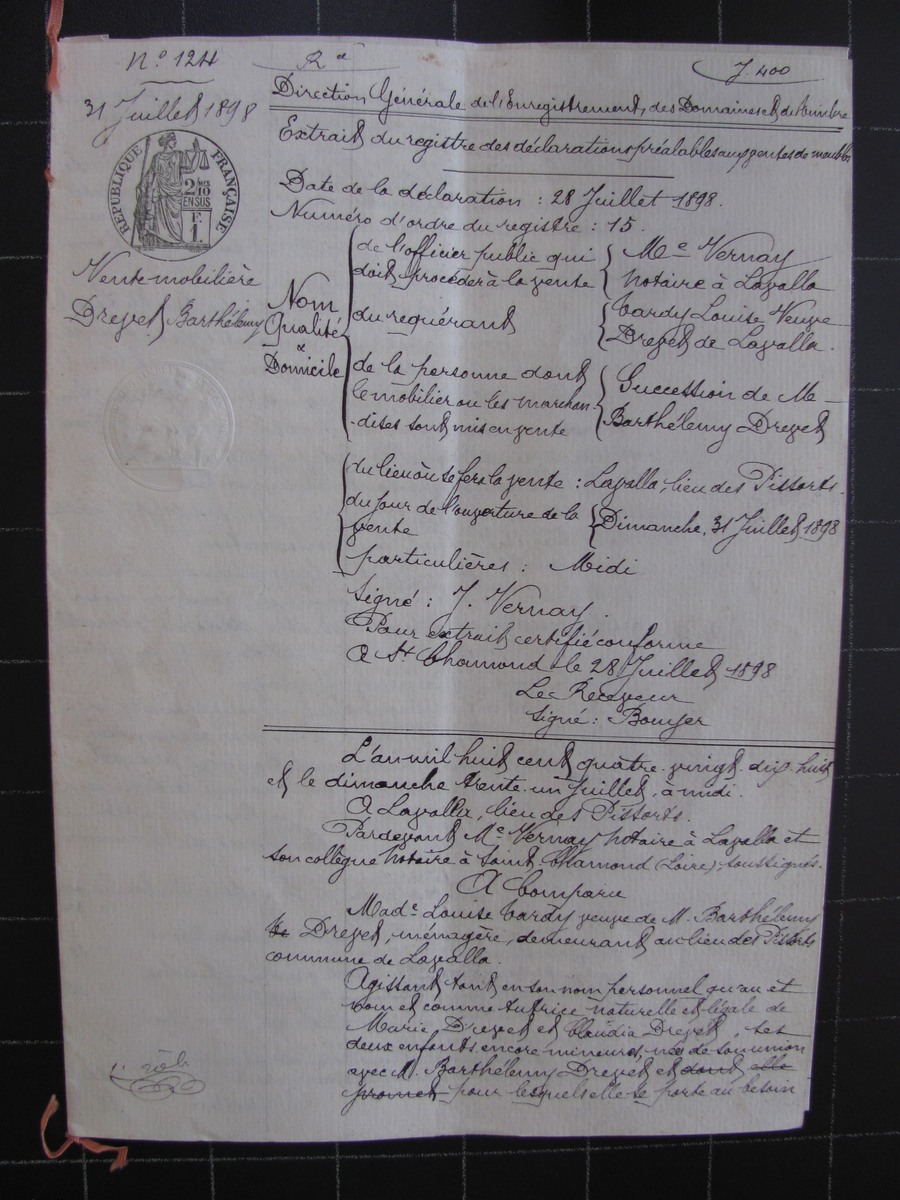 N.° 124
31 Juillet 1898
RÉPUBLIQUE FRANÇAISE
2/10
EN SUS
F.
1.
Vente mobilière
Drevet Barthélemy
J. 400
Direction Générale de l'Enregistrement, des Domaines et du Timbre
Extrait du registre des déclarations préalables aux ventes de meubles
Date de la déclaration : 28 Juillet 1898.
Numéro d'ordre du registre : 15.
Nom
Qualité
&
Domicile
de l'officier public qui
doit procéder à la vente
Me Vernay
notaire à Lavalla
du requérant
Tardy Louise Veuve
Drevet de Lavalla.
de la personne dont
le mobilier ou les marchan-
dises sont mis en vente
Succession de Me
Barthélemy Drevet
du lieu où se fera la vente : Lavalla, lieu des Pissorts.
du jour de l'ouverture de la
vente
Dimanche, 31 Juillet 1898
particulières : Midi
Signé : J. Vernay.
Pour extrait certifié conforme
A St Chamond le 28 Juillet 1898
Le Receveur
Signé : Bouyer
L'an mil huit cent quatre-vingt-dix-huit
et le dimanche trente-un Juillet, à midi.
A Lavalla, lieu des Pissorts.
Pardevant Me Vernay notaire à Lavalla et
son collègue notaire à Saint-Chamond (Loire), soussignés.
A Comparu
Made Louise Tardy veuve de M. Barthélemy
Drevet, ménagère, demeurant au lieu des Pissorts
commune de Lavalla.
Agissant tant en son nom personnel qu'au et
nom et comme tutrice naturelle et légale de
Marie Drevet et Claudia Drevet, ses
deux enfants encore mineurs, nés de son union
avec M. Barthélemy Drevet et dont elle
promet pour lesquels elle se porte au besoin
1er rôle